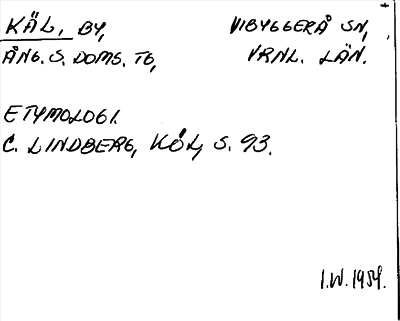 KÄL, BY, VIBYGGERÅ SN,
ÅNG. S. DOMS. TG, VRNL. LÄN.
ETYMOLOGI.
C. LINDBERG, KÖL, S. 93.
I.W. 1954.